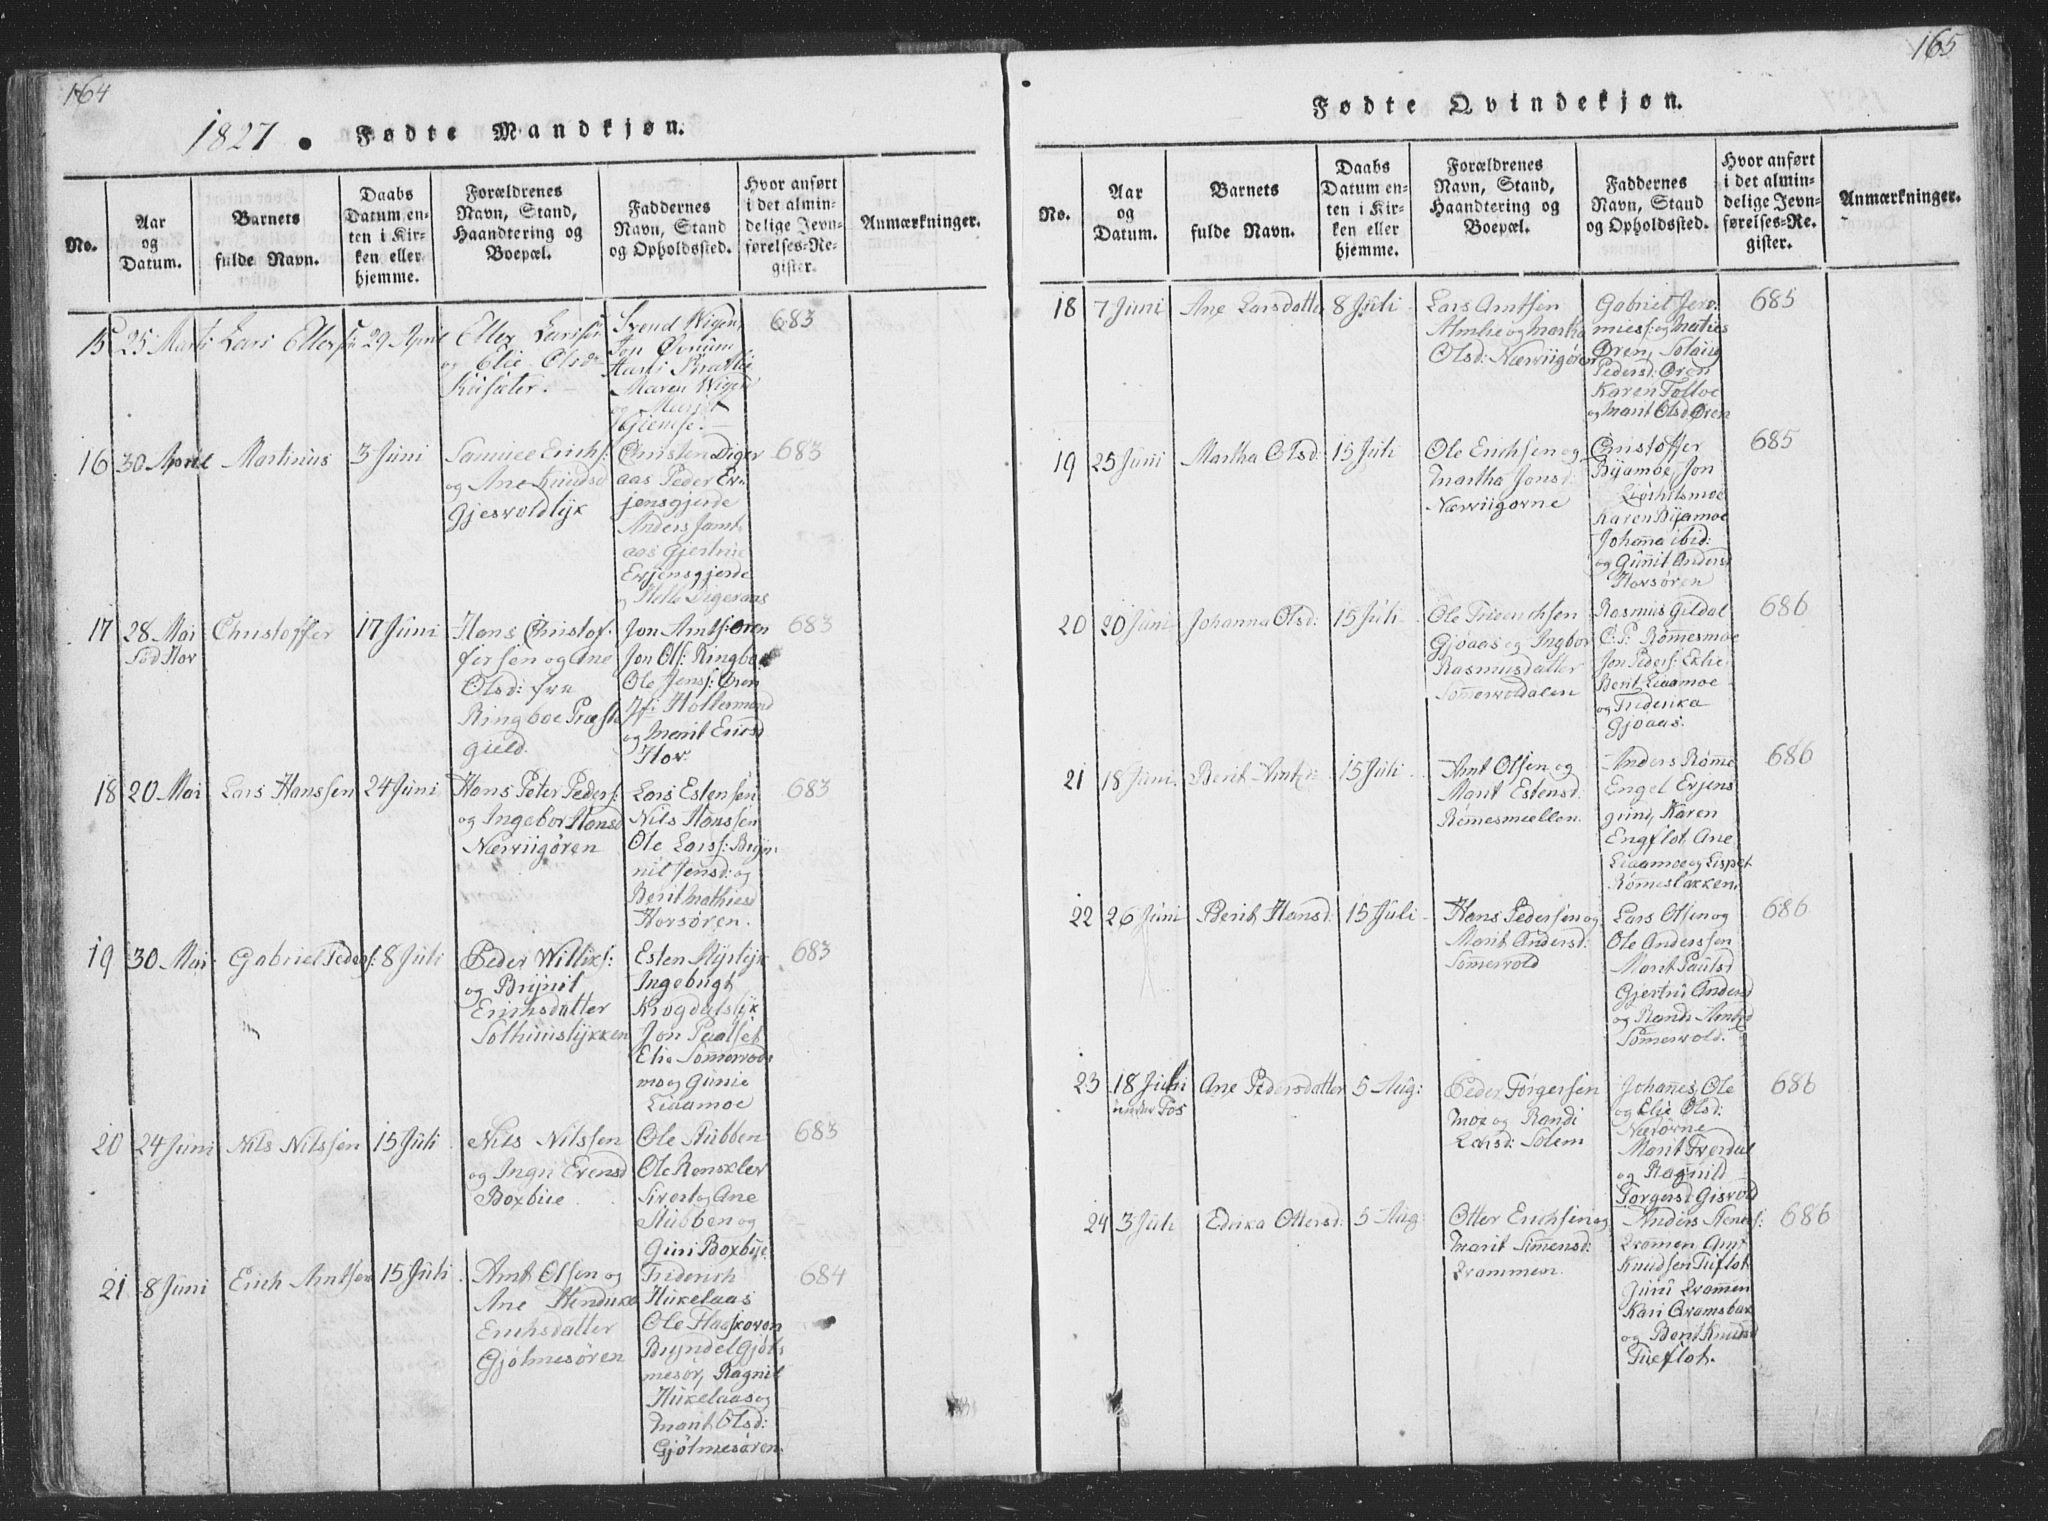 164
1827. Fødte Mandkjøn.
No.
Aar
og
Datum.
Barnets
fulde Navn.
Daabs
Datum en-
ten i Kir-
ken eller
hjemme.
Forældrenes
Navn, Stand,
Haandtering og
Boepæl.
Faddernes
Navn, Stand
og Opholdssted.
Hvor anført
i det almin-
delige Jevn-
førelses-Re-
gister.
Anmærkninger.
15 25 Marti Lars Ellersen 29 April
Eller Larssen
og Elie Olsd
Svend Wigen,
Jon Øvrum
Maren Wigen
og
683
16 30 April Martinus 3 Juni
Samuel Erichs:
og Ane Knudsd
Gjesvoldlyk
Christen Diger
aas Peder Er-
jensgjerde
Anders Jamt
aas Gjertrue
Erjensgjerde
og Digeraas
683
17 28 Mai
Fød Hov
Christoffer 17 Juni
Hans Christof
fersen og Ane
Olsd: fra
Ringboe Præste
gield.
Jon Amts: Øren
Jon Ols: Ringboe
Ole Jens: Øren
Jfr: Holtermand
og Marit Ericsd
Hov.
683
18 20 Mai Lars Hanssen 24 Juni
Hans Peter Peders:
og Ingebor Hansd
Nærviigøren
Lars Estensen
Nils Hanssen
Ole Larss: Bryn-
nil Jensd: og
Berit Mathiesd
Horsøren.
683
19 30 Mai Gabriel Peders: 8 Juli
Peder Williks:
og Brynil
Erichsdatter
Solhuuslykken
Esten Myrlyk
Ingebrigt
Krogdalslyk
Jon
Elie Somervold
mo og Gunie
Liaamoe
683
20 24 Juni Nils Nilssen 15 Juli
Nils Nilssen
og Ingri Evensd
Boxbye
Ole Stubben
Ole Rønskler
Sivert og Ane
Stubben og
Guri Boxbye
683
21 8 Juni Erich Amtsen 15 Juli
Amt Olsen og
Ane Hendrika
Erichsdatter
Gjølmesøren
Friderich
Hukelaas
Ole Haaskoren
Bryndel Gjøl-
mesør, Ragnil
Hukelaas og
Marit Olsd:
Gjølmesøren.
684
165
Fødte Qvindekjøn.
No.
Aar
og
Datum.
Barnets
fulde Navn.
Daabs
Datum en-
ten i Kir-
ken eller
hjemme.
Forældrenes
Navn, Stand,
Haandtering og
Boepæl.
Faddernes
Navn, Stand
og Opholdssted.
Hvor anført
i det almin-
delige Jevn-
førelses-Re-
gister.
Anmærkninger.
18 7 Juni Ane Larsdatter 8 Juli
Lars Amtsen
Almlie og Martha
Olsd: Nærviigøren
Gabriel Jere-
mies: og Mathies
Øren, Solvig
Pedersd: Øren
Karen Tolloe
og Marit Olsd Øren
685
19 25 Juni Martha Olsd: 15 Juli
Ole Erichsen og
Martha Jonsd:
Nærviigørne
Christoffer
Byamoe, Jon
Karen Byamoe
Johanna ibid:
og Gunnit Andersd
Horsøren
685
20 20 Juni Johanna Olsd: 15 Juli
Ole Friderichsen
Gjøaas og Ingbor
Rasmusdatter
Somervoldalen
Rasmus Gildal
C: P: Rømmesmoe
Jon Peders: Exlie
Berit Liaamoe
og Friderika
Gjøaas.
686
21 18 Juni Berit Amtsd: 15 Juli
Amt Olsen og
Marit Estensd:
Rømmesmællen
Anders Rømme
Engel Erjens
giird, Karen
Engflot, Ane
Liaamoe og Lispet
Rømmesløkken.
686
22 26 Juni Berit Hansd: 15 Juli
Hans Pedersen og
Marit Andersd:
Somervold
Lars Olsen og
Ole Anderssen
Marit Paulsd
Gjertru Andersd
og Randi Amtsd
Somervold.
686
23 18 Juli
Ane Pedersdatter 5 Aug:
Peder Torgersen
Moe og Randi
Larsd: Solem
Johannes, Ole
og Elie Olsd:
Nærørne
Marit Frerdal
og Ragnild
Torgersd Gisvold
686
24 3 Juli Edrika Ottersd: 5 Aug:
Otter Erichsen og
Marit Simensd:
Drammen.
Anders Steners:
Drammen, Amt
Knudsen Tueflot
Guru Drammen
Kari Qvamsbak
og Berit Knudsd
Tueflot.
686